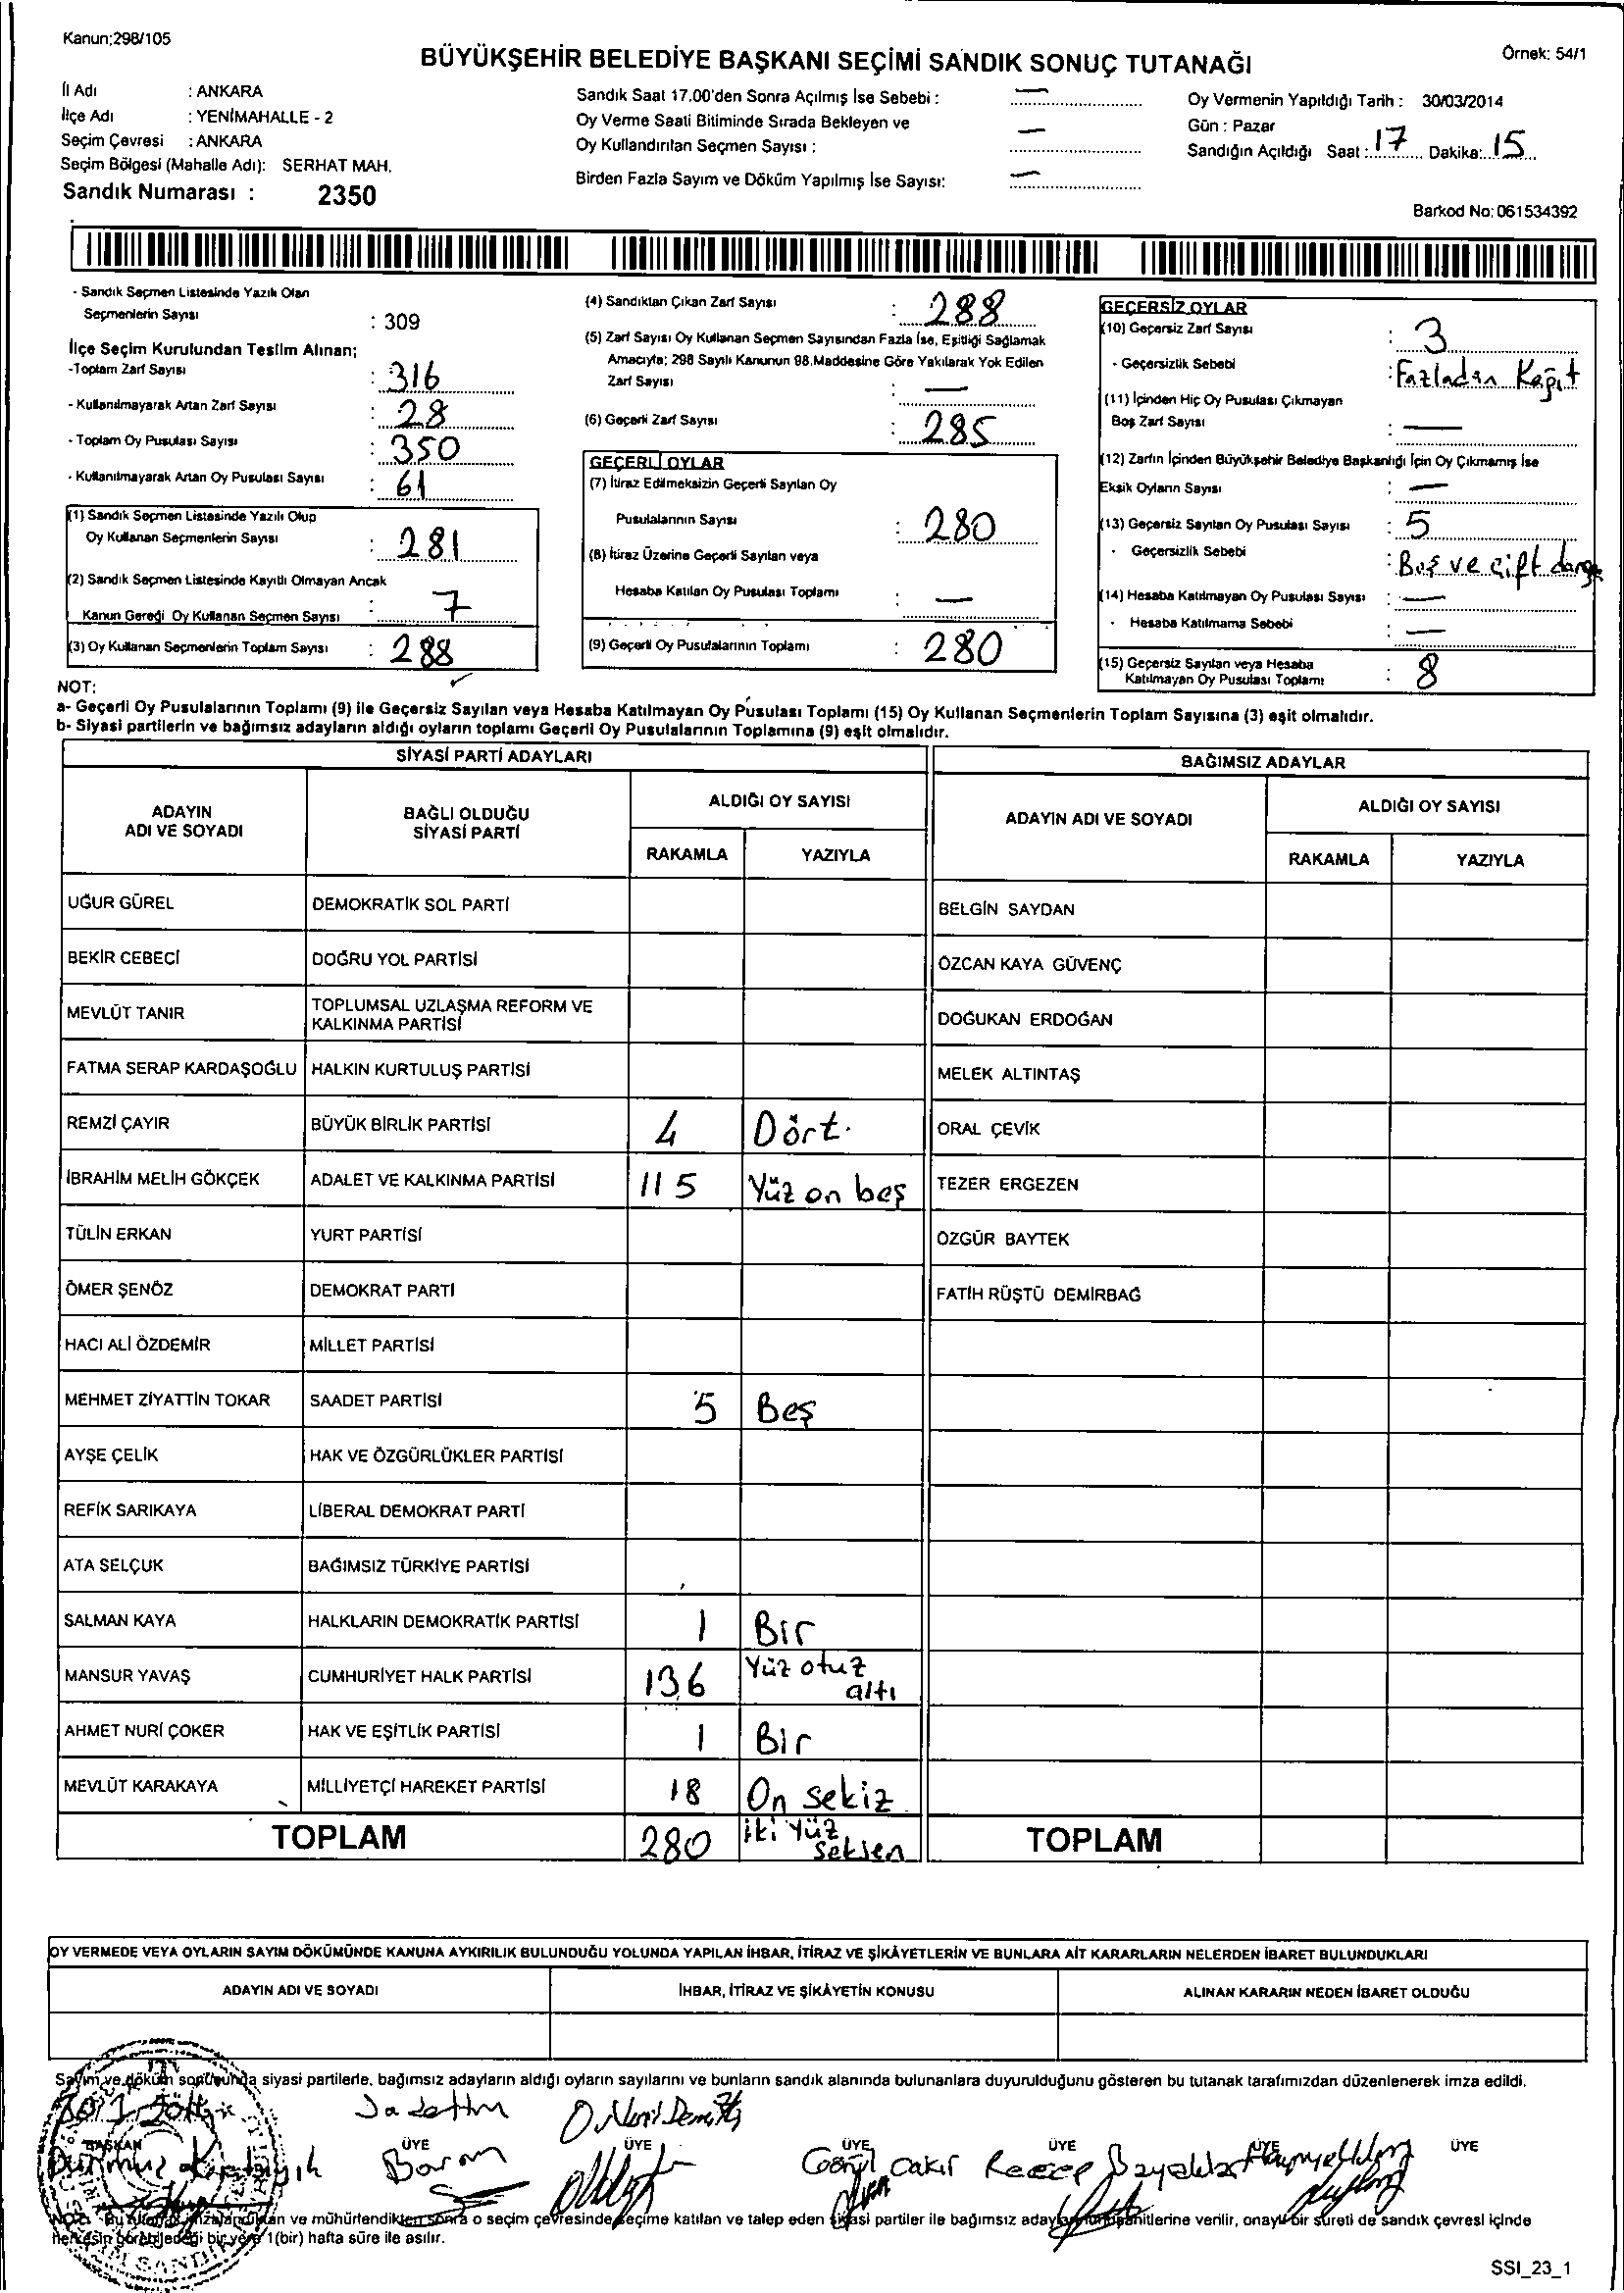 Kanun;298/105
BÜYÜKŞEHİR BELEDİYE BAŞKANI SEÇİMİ SANDIK SONUÇ TUTANAĞI
Örnek: 54/1
İl Adı : ANKARA
İlçe Adı : YENİMAHALLE - 2
Seçim Çevresi : ANKARA
Seçim Bölgesi (Mahalle Adı): SERHAT MAH.
Sandık Numarası : 2350
Sandık Saat 17.00'den Sonra Açılmış İse Sebebi : —
Oy Verme Saati Bitiminde Sırada Bekleyen ve
Oy Kullandırılan Seçmen Sayısı : —
Birden Fazla Sayım ve Döküm Yapılmış İse Sayısı: —
Oy Vermenin Yapıldığı Tarih : 30/03/2014
Gün : Pazar
Sandığın Açıldığı Saat : 17 Dakika: 15
Barkod No: 061534392
- Sandık Seçmen Listesinde Yazılı Olan
Seçmenlerin Sayısı : 309
İlçe Seçim Kurulundan Teslim Alınan;
-Toplam Zarf Sayısı : 316
- Kullanılmayarak Artan Zarf Sayısı : 28
- Toplam Oy Pusulası Sayısı : 350
- Kullanılmayarak Artan Oy Pusulası Sayısı : 61
(1) Sandık Seçmen Listesinde Yazılı Olup
Oy Kullanan Seçmenlerin Sayısı : 281
(2) Sandık Seçmen Listesinde Kayıtlı Olmayan Ancak
Kanun Gereği Oy Kullanan Seçmen Sayısı : 7
(3) Oy Kullanan Seçmenlerin Toplam Sayısı : 288
(4) Sandıktan Çıkan Zarf Sayısı : 288
(5) Zarf Sayısı Oy Kullanan Seçmen Sayısından Fazla İse, Eşitliği Sağlamak
Amacıyla; 298 Sayılı Kanunun 98.Maddesine Göre Yakılarak Yok Edilen
Zarf Sayısı : —
(6) Geçerli Zarf Sayısı : 285
GEÇERLİ OYLAR
(7) İtiraz Edilmeksizin Geçerli Sayılan Oy
Pusulalarının Sayısı : 280
(8) İtiraz Üzerine Geçerli Sayılan veya
Hesaba Katılan Oy Pusulası Toplamı : —
(9) Geçerli Oy Pusulalarının Toplamı : 280
GEÇERSİZ OYLAR
(10) Geçersiz Zarf Sayısı : 3
- Geçersizlik Sebebi : Fazladan Kağıt
(11) İçinden Hiç Oy Pusulası Çıkmayan
Boş Zarf Sayısı : —
(12) Zarfın İçinden Büyükşehir Belediye Başkanlığı İçin Oy Çıkmamış İse
Eksik Oyların Sayısı : —
(13) Geçersiz Sayılan Oy Pusulası Sayısı : 5
- Geçersizlik Sebebi : Boş ve çift damga
(14) Hesaba Katılmayan Oy Pusulası Sayısı : —
- Hesaba Katılmama Sebebi : —
(15) Geçersiz Sayılan veya Hesaba
Katılmayan Oy Pusulası Toplamı : 8
NOT:
a- Geçerli Oy Pusulalarının Toplamı (9) ile Geçersiz Sayılan veya Hesaba Katılmayan Oy Pusulası Toplamı (15) Oy Kullanan Seçmenlerin Toplam Sayısına (3) eşit olmalıdır.
b- Siyasi partilerin ve bağımsız adayların aldığı oyların toplamı Geçerli Oy Pusulalarının Toplamına (9) eşit olmalıdır.
SİYASİ PARTİ ADAYLARI BAĞIMSIZ ADAYLAR
ADAYIN ADI VE SOYADI BAĞLI OLDUĞU SİYASİ PARTİ ALDIĞI OY SAYISI ADAYIN ADI VE SOYADI ALDIĞI OY SAYISI
RAKAMLA YAZIYLA RAKAMLA YAZIYLA
UĞUR GÜREL DEMOKRATİK SOL PARTİ BELGİN SAYDAN
BEKİR CEBECİ DOĞRU YOL PARTİSİ ÖZCAN KAYA GÜVENÇ
MEVLÜT TANIR TOPLUMSAL UZLAŞMA REFORM VE KALKINMA PARTİSİ DOĞUKAN ERDOĞAN
FATMA SERAP KARDAŞOĞLU HALKIN KURTULUŞ PARTİSİ MELEK ALTINTAŞ
REMZİ ÇAYIR BÜYÜK BİRLİK PARTİSİ 4 Dört. ORAL ÇEVİK
İBRAHİM MELİH GÖKÇEK ADALET VE KALKINMA PARTİSİ 115 Yüz on beş TEZER ERGEZEN
TÜLİN ERKAN YURT PARTİSİ ÖZGÜR BAYTEK
ÖMER ŞENÖZ DEMOKRAT PARTİ FATİH RÜŞTÜ DEMİRBAĞ
HACI ALİ ÖZDEMİR MİLLET PARTİSİ
MEHMET ZİYATTİN TOKAR SAADET PARTİSİ 5 Beş
AYŞE ÇELİK HAK VE ÖZGÜRLÜKLER PARTİSİ
REFİK SARIKAYA LİBERAL DEMOKRAT PARTİ
ATA SELÇUK BAĞIMSIZ TÜRKİYE PARTİSİ
SALMAN KAYA HALKLARIN DEMOKRATİK PARTİSİ 1 Bir
MANSUR YAVAŞ CUMHURİYET HALK PARTİSİ 136 Yüz otuz altı
AHMET NURİ ÇOKER HAK VE EŞİTLİK PARTİSİ 1 Bir
MEVLÜT KARAKAYA MİLLİYETÇİ HAREKET PARTİSİ 18 On sekiz
TOPLAM 280 iki Yüz seksen TOPLAM
OY VERMEDE VEYA OYLARIN SAYIM DÖKÜMÜNDE KANUNA AYKIRILIK BULUNDUĞU YOLUNDA YAPILAN İHBAR, İTİRAZ VE ŞİKÂYETLERİN VE BUNLARA AİT KARARLARIN NELERDEN İBARET BULUNDUKLARI
ADAYIN ADI VE SOYADI İHBAR, İTİRAZ VE ŞİKÂYETİN KONUSU ALINAN KARARIN NEDEN İBARET OLDUĞU
Sayım ve döküm sonucunda siyasi partilerle, bağımsız adayların aldığı oyların sayılarını ve bunların sandık alanında bulunanlara duyurulduğunu gösteren bu tutanak tarafımızdan düzenlenerek imza edildi.
BAŞKAN ÜYE ÜYE ÜYE ÜYE ÜYE ÜYE
Durmuş Baran Gönül Çakır Recep
ve mühürlendikten sonra o seçim çevresinde seçime katılan ve talep eden siyasi partiler ile bağımsız aday verilir, onaylı bir sureti de sandık çevresi içinde
herkesin görebileceği bir yere 1(bir) hafta süre ile asılır.
SSI_23_1